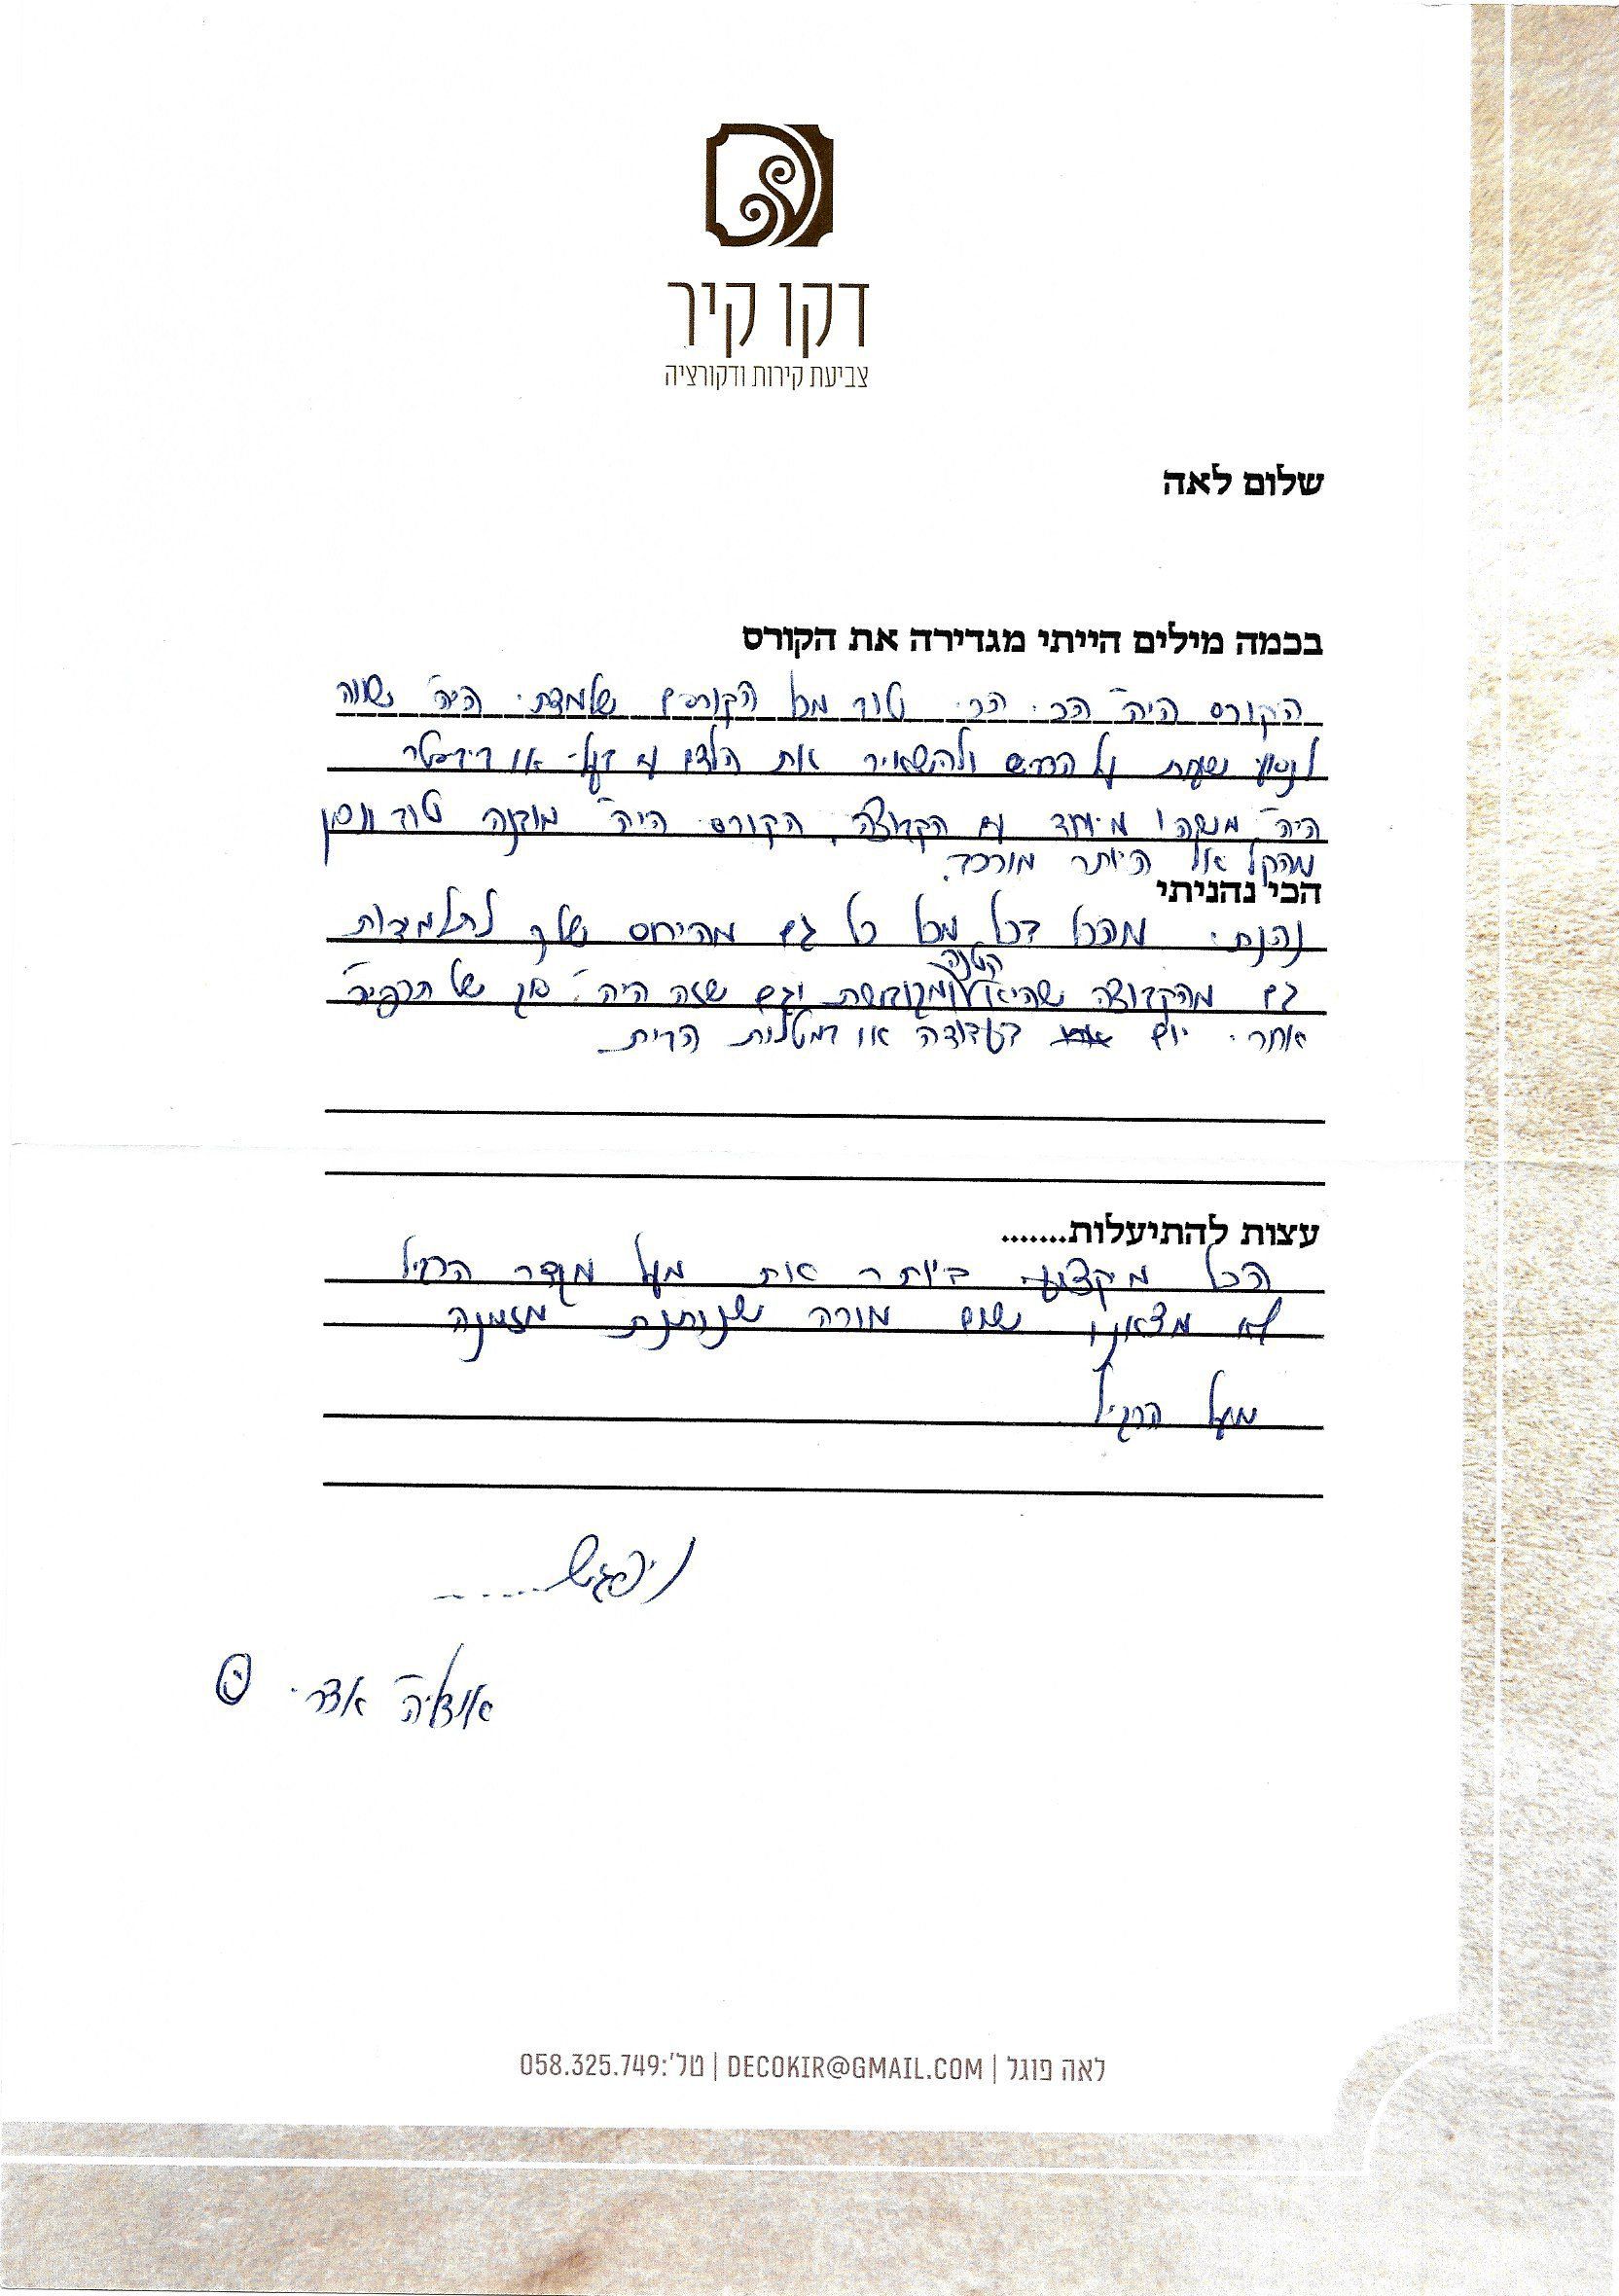 דקו קיר
צביעת קירות ודקורציה
שלום לאה
בכמה מילים הייתי מגדירה את הקורס
הקורס היה הכי הכי טוב מכל הקורסים שלמדתי היה שווה
לנסוע שעתיים על הכביש ולהשאיר את הילדים עם בעלי או ביביסטר
היה משהו מיוחד עם הקבוצה, הקורס היה מובנה טוב
מהקל אל היותר מורכב.
הכי נהניתי
נהנתי מהכל בכל מכל כל גם מהיחס שלך לתלמידות
גם מהקבוצה הקטנה שהיא וגם שזה היה סוג של תרפיה
אחרי יום בעבודה או במטלות הבית
עצות להתיעלות.......
הכל מיקצועי ביותר את מעל מגדר הרגיל
לא מצאנו שום מורה שנותנת מזמנה
מעל הרגיל
ניפגש......
אדרי
לאה פוגל | DECOKIR@GMAIL.COM | טל':058.325.749